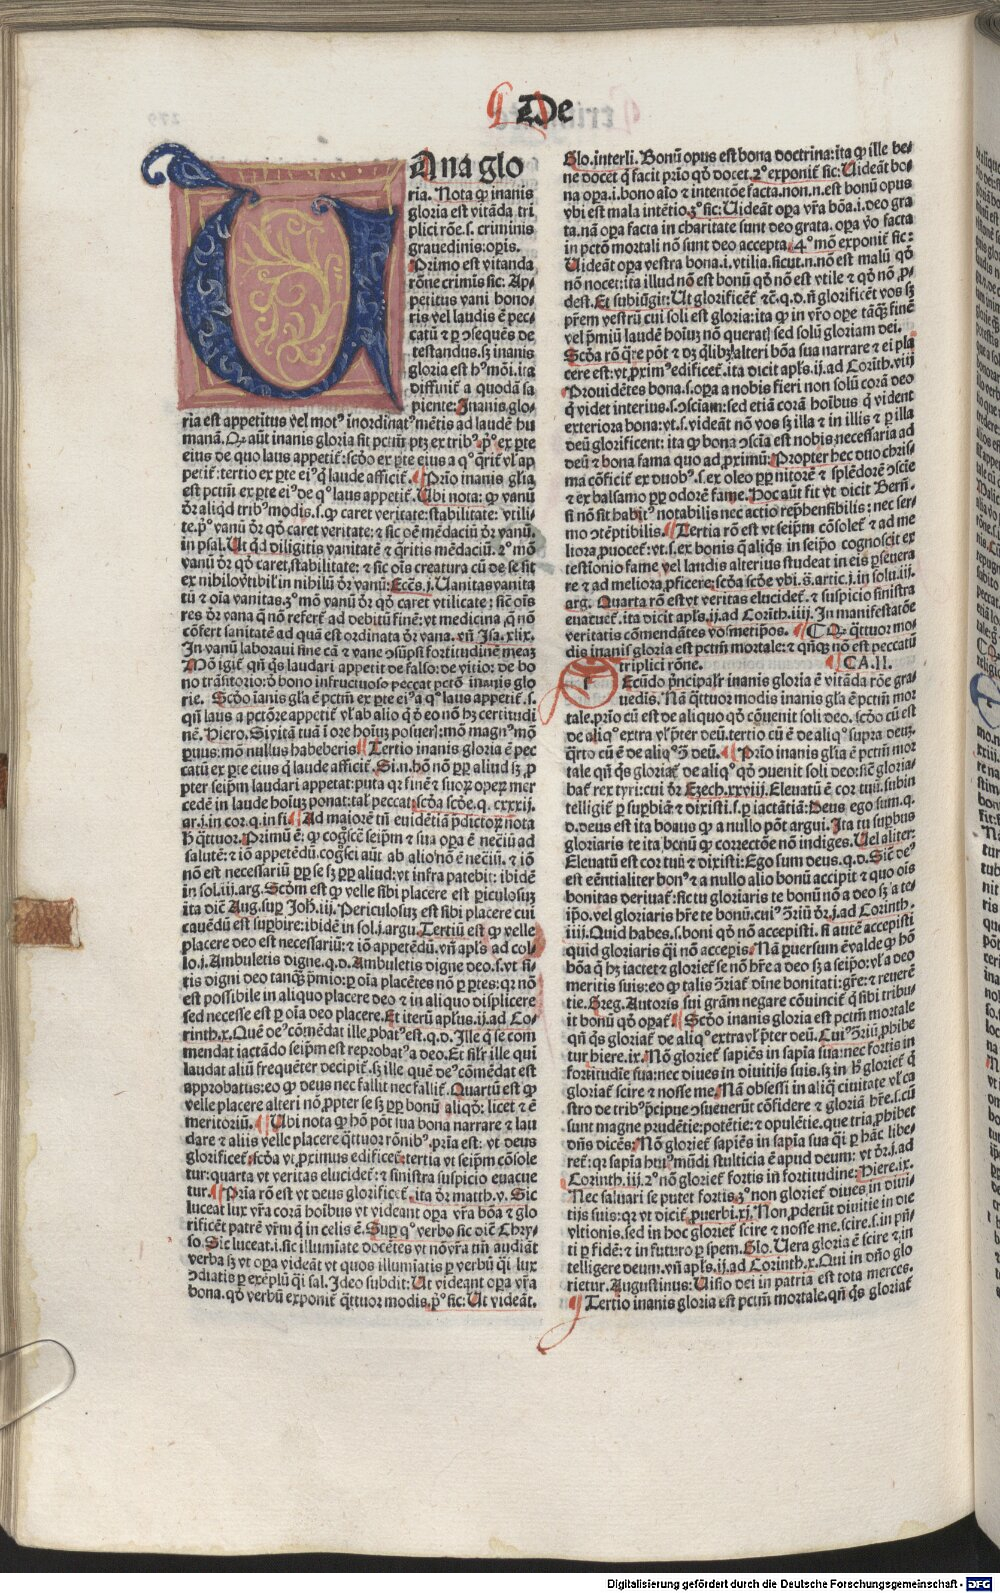 De
Ana glo
ria. Nota qꝫ inanis
gloria est vitāda tri
plici rōne.s. criminis
grauedinis:oꝑis.
Primo est vitanda
rōne crimis sic: Ap-
petitus vani hono-
ris vel laudis ē pec-
catū ⁊ ꝑ ↄsequēs de
testandus.sꝫ inanis
gloria est hꝰmōi.ita
diffinit᷑ a quodā sa
piente:Inanis glo-
ria est appetitus vel motꝰ inordinatꝰ mētis ad laudē hu
manā. Qꝫ aūt inanis gloria sit pctm̄ ptꝫ ex tribꝰ.pͦ ex ꝑte
eius de quo laus appetit᷑:scd̄o ex ꝑte eius a qͦ q̄rit᷑ vl̓ ap
petit᷑:tertio ex ꝑte eiꝰ q̄ laude afficit᷑. Prīo inanis gl̓ia
est pctm̄ ex ꝑte eiꝰ de qͦ laus appetit᷑. Ubi nota: qꝫ vanū
dr̄ aliqd tribꝰ modis.s.qꝫ caret veritate:stabilitate: vtili-
te.pͦ vanū dr̄ qd̄ caret veritate: ⁊ sic oē mēdaciū dr̄ vanū.
in psal. Ut qd diligitis vanitatē ⁊ q̄ritis mēdaciū. 2ͦ mō
vanū dr̄ qd̄ caret stabilitate: ⁊ sic oīs creatura cū de se sit
ex nihilo vertibil̓ in nihilū dr̄ vanū: Eccs̄.j. Uanitas vanita
tū ⁊ oīa vanitas.3ͦ mō vanū dr̄ qd̄ caret vtilitate: sic oīs
res dr̄ vana q̄ nō refert᷑ ad debitū finē: vt medicina q̄ nō
cōfert sanitatē ad quā est ordinata dr̄ vana. vn̄ Isa.xlix.
In vanū laboraui sine cā ⁊ vane ↄsūpsi fortitudinē meaꝫ
Mō igit᷑ qn̄ qs laudari appetit de falso: de vitio: de bo
no trāsitorio: d̓ bono infructuoso peccat pctō inanis glo
rie. Scd̄o īanis gl̓a ē pctm̄ ex ꝑte eiꝰ a qͦ laus appetit᷑.s.
qn̄ laus a pctōre appetit᷑ vl̓ ab alio q̄ d̓ eo nō hꝫ certitudi
nē. Hiero. Si vitā tuā ī ore hoīuꝫ posueꝭ: mō magnꝰ mō
ꝑuus: mō nullus habeberis. Tertio inanis gloria ē pec
catū ex ꝑte eius q̄ laude afficit᷑. Si.n.hō nō ꝓp aliud sꝫ ꝓ
pter seipm̄ laudari appetat: puta qꝛ finē ⁊ suoꝝ operū mer
cedē in laude hoīuꝫ ponat: tal̓ peccat: scd̄a scd̄e.q. cxxxij.
ar.j.in cor.q.in fi. Ad maiorē tn̄ euidētiā p̄dictoꝝ nota
hͨ q̄ttuor. Primū ē: qꝫ cog̓scē seipm̄ ⁊ sua oꝑa ē necīū ad
salutē: ⁊ iō appetēdū. cog̓sci aūt ab alio nō ē neciū. ⁊ iō
nō est necessariū ꝓp se sꝫ ꝓp aliud: vt infra patebit: ibidē
in sol.iij.arg. Scd̄m est qꝫ velle sibi placere est ꝑiculosuꝫ
ita dic̄ Aug. suꝑ Joh̓.iij. Periculosuꝫ est sibi placere cui
cauēdū est suꝑbire: ibidē in sol.j.argu. Tertiū est qꝫ velle
placere deo est necessariū: ⁊ iō appetēdū. vn̄ apl̓s ad col-
lo.j. Ambuletis digne.q.d. Ambuletis digne deo.s.vt si-
tis digni deo tanqꝫ p̄mio: ꝑ oīa placētes nō ꝑ ꝑtes: qꝛ nō
est possibile in aliquo placere deo ⁊ in aliquo displicere
sed necesse est ꝑ oīa deo placere. Et iterū apl̓us.ij.ad Co-
rinth.x. Quē deꝰ cōmēdat ille ꝓbatꝰ est.q.d. Ille q̄ se com
mendat iactādo seipm̄ est reprobatꝰ a deo. Et sil̓r ille qui
laudat aliū frequēter decipit᷑. sꝫ ille quē deꝰ cōmēdat est
approbatus: eo qꝫ deus nec fallit nec fallit᷑. Quartū est qꝫ
velle placere alteri nō ꝓpter se sꝫ ꝓp bonū aliqd̓: licet ⁊ ē
meritoriū. Ubi nota qꝫ hō pōt sua bona narrare ⁊ lau
dare ⁊ aliis velle placere q̄ttuor rōnibꝰ. pria est: vt deus
glorificet᷑. scd̄a vt ꝓximus edificet᷑: tertia vt seipm̄ cōsole
tur: quarta vt veritas elucidet᷑: ⁊ sinistra suspicio euacue
tur. Pria rō est vt deus glorificet᷑. ita dr̄ matth.v. Sic
luceat lux vr̄a corā hoībus vt videant oꝑa vr̄a bōa ⁊ glo
rificēt patrē vr̄m q̄ in celis ē. Suꝑ qͦ verbo sic dic̄ Chry-
so. Sic luceat.i.sic illumīate docētes vt nō vr̄a tm̄ audiāt
verba sꝫ vt oꝑa videāt vt quos illumiatis ꝑ verbū q̄i lux
ↄdiatis ꝑ exēplū q̄i sal. Ideo subdit: Ut videant oꝑa vr̄a
bona. qd̄ verbū exponit᷑ q̄ttuor modis. pͦ sic: Ut videāt.
Glo.interli. Bonū opus est bona doctrina: ita qꝫ ille be-
ne docet q̄ facit prīo qd̄ docet. 2ͦ exponit᷑ sic: Uideāt bo-
na oꝑa.i.bono aīo ⁊ intentōe facta. non.n.est bonū opus
vbi est mala intētio. 3ͦ sic: Uideāt oꝑa vr̄a bōa.i.deo gra
ta. nā oꝑa facta in charitate sunt deo grata. oꝑa vo facta
in pctō mortali nō sunt deo accepta. 4ͦ mō exponit᷑ sic:
Uideāt oꝑa vestra bona.i.vtilia. sicut.n.nō est malū qd̄
nō nocet: ita illud nō est bonū qd̄ nō est vtile ⁊ qd̄ nō ꝓ-
dest. Et subiūgit᷑: Ut glorificēt ⁊c.q.d.nō glorificēt vos sꝫ
pr̄em vestrū cui soli est gloria: ita qꝫ in vr̄o oꝑe tāqꝫ finē
vel p̄miū laudē hoīuꝫ nō querat᷑ sed solū gloriam dei.
Scd̄a rō q̄re pōt ⁊ dꝫ q̄libꝫ alteri bōa sua narrare ⁊ ei pla
cere est: vt ꝓximꝰ edificet᷑. ita dicit apl̓s.ij.ad Corīth.viij
Prouidētes bona.s.oꝑa a nobis fieri non solū corā deo
q̄ videt interius.s.ↄsciam: sed etiā corā hoībus q̄ vident
exteriora bona: vt.s.videāt nō vos sꝫ illa ⁊ in illis ⁊ ꝑ illa
deū glorificent: ita qꝫ bona ↄscīa est nobis necessaria ad
deū ⁊ bona fama quo ad ꝓximū. Propter hec duo chris-
ma cōficit᷑ ex duobꝰ.s.ex oleo ꝓp nitorē ⁊ splēdorē ↄscīe
⁊ ex balsamo ꝓp odorē fame. Hoc aūt fit vt dicit Bern̄.
si nō sit habitꝰ notabilis nec actio rep̄hensibilis: nec ser-
mo ↄtēptibilis. Tertia rō est vt seipm̄ cōsolet᷑ ⁊ ad me
liora ꝓuocet᷑: vt.s.ex bonis q̄ aliqs in seipo cognoscit ex
testīonio fame vel laudis alterius studeat in eis ꝑseuera
re ⁊ ad meliora ꝓficere: scd̄a scd̄e vbi.s̄.artic.j.in solu.iij.
arg. Quarta rō est vt veritas elucidet᷑. ⁊ suspicio sinistra
euacuet᷑. ita dicit apl̓s.ij.ad Corīth.iiij. In manifestatōe
veritatis cōmendātes vosmetip̄os. Qꝫ q̄ttuor mo-
dis inanis gloria est pctm̄ mortale: ⁊ qn̄qꝫ nō est peccatū
triplici rōne. CA.II.
Ecūdo p̄ncipalr̓ inanis gloria ē vitāda rōe gra
uedis. Nā q̄ttuor modis inanis gl̓a ē pctm̄ mor
tale. prīo cū est de aliquo qd̄ cōuenit soli deo. scd̄o cū est
de aliqͦ extra vl̓ p̄ter deū. tertio cū ē de aliqͦ supra deuꝫ.
q̄rto cū ē de aliqͦ ↄ̄ deū. Prīo inanis gl̓ia ē pctm̄ mor
tale qn̄ qs gloriat᷑ de aliqͦ qd̄ ↄuenit soli deo: sic̄ gloria-
bat᷑ rex tyri: cui dr̄ Ezech.xxviij. Eleuatū ē cor tuū. subin
telligit᷑ ꝑ suꝑbiā: ⁊ dixisti.s.ꝑ iactātiā: Deus ego sum.q.
d.deus est ita bonus qꝫ a nullo pōt argui. Ita tu suꝑbus
gloriaris te ita bonū qꝫ correctōe nō indiges. Uel aliter:
Eleuatū est cor tuū ⁊ dixisti: Ego sum deus.q.d. Sic̄ deꝰ
est eēntialiter bonꝰ ⁊ a nullo alio bonū accipit ⁊ quo oīs
bonitas deriuat᷑: sic tu gloriaris te bonū nō a deo sꝫ a te-
ip̄o. vel gloriaris hr̄e te bonū. cuiꝰ ↄ̄riū dr̄.j.ad Corinth.
iiij. Quid habes.s.boni qd̄ nō accepisti. si autē accepisti
quid gloriaris q̄i nō acceꝑis. Nā ꝑuersum ē valde qꝫ hō
bōa q̄ hꝫ iactet ⁊ gloriet᷑ se nō hr̄e a deo sꝫ a seipo: vl̓ a deo
meritis suis: eo qꝫ talis ↄ̄riat᷑ dīne bonitati: gr̄e: ⁊ reuerē
tie. Greg. Autoris sui gr̄am negare cōuincit᷑ q̄ sibi tribu
it bonū qd̄ oꝑat᷑. Scd̄o inanis gloria est pctm̄ mortale
qn̄ qs gloriat᷑ de aliqͦ extra vl̓ p̄ter deū. Cuiꝰ ↄ̄riū ꝓhibe
tur hiere.ix. Nō gloriet᷑ sapiēs in sapīa sua: nec fortis in
fortitudīe sua: nec diues in diuitijs suis. sꝫ in hͦ gloriet᷑ q̄
gloriat᷑ scire ⁊ nosse me. Nā obsessi in aliq̄ ciuitate vl̓ ca
stro de tribꝰ p̄cipue ↄsueuerūt cōfidere ⁊ gloriā hr̄e.s.cū
sunt magne prudētie: potētie: ⁊ opulētie. que tria ꝓhibet
dn̄s dicēs: Nō gloriet᷑ sapiēs in sapīa sua q̄i ꝑ hāc libe-
ret᷑: qꝛ sapīa huiꝰ mūdi stulticia ē apud deum: vt dr̄.j.ad
Corinth.iij. 2ͦ nō gloriet᷑ fortis in fortitudine: Hiere.ix.
Nec saluari se putet fortis. 3ͦ non gloriet᷑ diues in diui-
tijs suis: qꝛ vt dicit᷑ ꝓuerbi.xj. Non ꝓderūt diuitie in die
vltionis. sed in hoc gloriet᷑ scire ⁊ nosse me. scire.s.in pn̄-
ti ꝑ fidē: ⁊ in futuro ꝑ spem. Glo. Uera gloria ē scire ⁊ in
telligere deum. vn̄ apl̓s.ij.ad Corinth.x. Qui in dn̄o glo
rietur. Augustinus: Uisio dei in patria est tota merces.
Tertio inanis gloria est pctm̄ mortale. qn̄ qs gloriat᷑
Digitalisierung gefördert durch die Deutsche Forschungsgemeinschaft - DFG